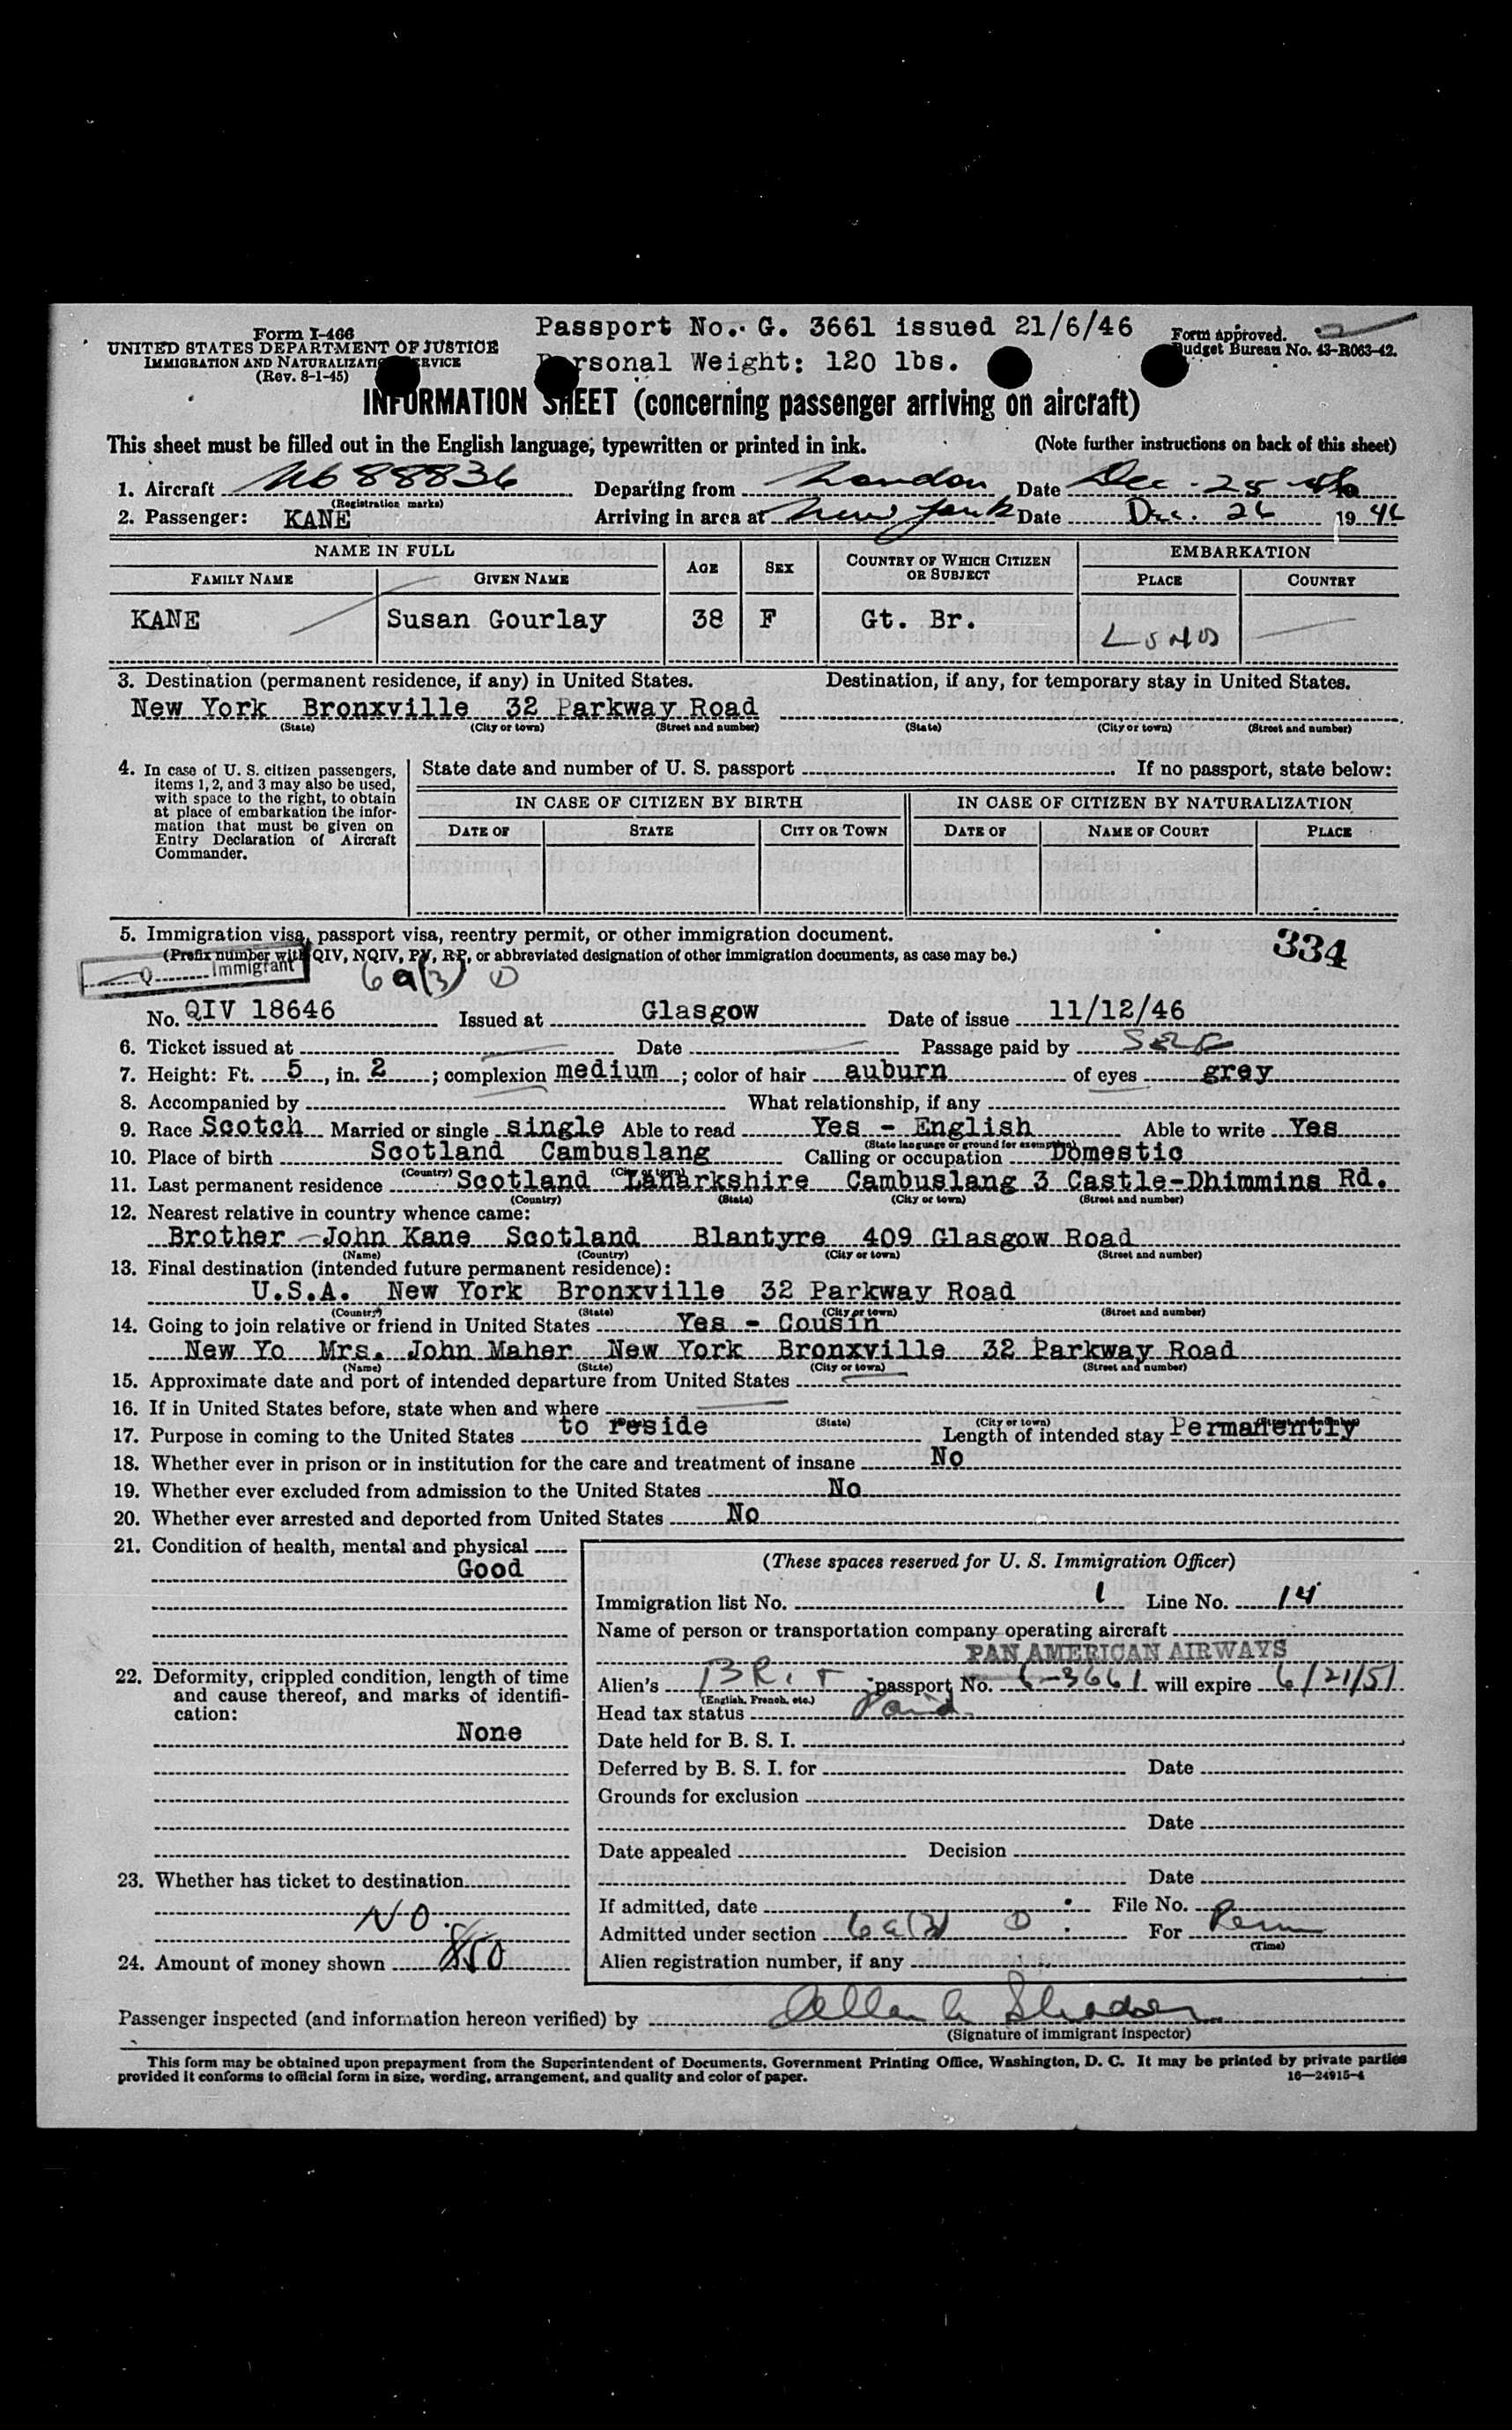 Form I-466
UNITED STATES DEPARTMENT OF JUSTICE
IMMIGRATION AND NATURALIZATION SERVICE
(Rev. 8-1-45)
Passport No. G. 3661 issued 21/6/46
Personal Weight: 120 lbs.
Form approved.
Budget Bureau No. 43-R063-42.
INFORMATION SHEET (concerning passenger arriving on aircraft)
This sheet must be filled out in the English language, typewritten or printed in ink. (Note further instructions on back of this sheet)
1. Aircraft 88836 Departing from London Date Dec. 25
(Registration marks)
2. Passenger: KANE Arriving in area at New York Date Dec. 26 1946
NAME IN FULL AGE SEX COUNTRY OF WHICH CITIZEN OR SUBJECT EMBARKATION
FAMILY NAME GIVEN NAME PLACE COUNTRY
KANE Susan Gourlay 38 F Gt. Br. LOND
3. Destination (permanent residence, if any) in United States. Destination, if any, for temporary stay in United States.
New York Bronxville 32 Parkway Road
(State) (City or town) (Street and number) (State) (City or town) (Street and number)
4. In case of U. S. citizen passengers, items 1, 2, and 3 may also be used, with space to the right, to obtain at place of embarkation the information that must be given on Entry Declaration of Aircraft Commander.
State date and number of U. S. passport If no passport, state below:
IN CASE OF CITIZEN BY BIRTH IN CASE OF CITIZEN BY NATURALIZATION
DATE OF STATE CITY OR TOWN DATE OF NAME OF COURT PLACE
5. Immigration visa, passport visa, reentry permit, or other immigration document. 334
(Prefix number with QIV, NQIV, PV, RP, or abbreviated designation of other immigration documents, as case may be.)
Q Immigrant 6a(3) D
No. QIV 18646 Issued at Glasgow Date of issue 11/12/46
6. Ticket issued at Date Passage paid by Self
7. Height: Ft. 5, in. 2; complexion medium; color of hair auburn of eyes grey
8. Accompanied by What relationship, if any
9. Race Scotch Married or single single Able to read Yes - English Able to write Yes
(State language or ground for exemption)
10. Place of birth Scotland Cambuslang Calling or occupation Domestic
(Country) (City or town)
11. Last permanent residence Scotland Lanarkshire Cambuslang 3 Castle-Dhimmins Rd.
(Country) (State) (City or town) (Street and number)
12. Nearest relative in country whence came:
Brother - John Kane Scotland Blantyre 409 Glasgow Road
(Name) (Country) (City or town) (Street and number)
13. Final destination (intended future permanent residence):
U.S.A. New York Bronxville 32 Parkway Road
(Country) (State) (City or town) (Street and number)
14. Going to join relative or friend in United States Yes - Cousin
New Yo Mrs. John Maher New York Bronxville 32 Parkway Road
(Name) (State) (City or town) (Street and number)
15. Approximate date and port of intended departure from United States
16. If in United States before, state when and where
(State) (City or town) (Street and number)
17. Purpose in coming to the United States to reside Length of intended stay Permanently
18. Whether ever in prison or in institution for the care and treatment of insane No
19. Whether ever excluded from admission to the United States No
20. Whether ever arrested and deported from United States No
21. Condition of health, mental and physical
Good
22. Deformity, crippled condition, length of time and cause thereof, and marks of identification:
None
23. Whether has ticket to destination
NO.
24. Amount of money shown 850
(These spaces reserved for U. S. Immigration Officer)
Immigration list No. 1 Line No. 14
Name of person or transportation company operating aircraft
PAN AMERICAN AIRWAYS
Alien's BRIT passport No. G-3661 will expire 6/21/51
(English, French, etc.)
Head tax status Paid
Date held for B. S. I.
Deferred by B. S. I. for Date
Grounds for exclusion
Date
Date appealed Decision
Date
If admitted, date File No.
Admitted under section 6a(3) D For Perm
(Time)
Alien registration number, if any
Passenger inspected (and information hereon verified) by
(Signature of immigrant inspector)
This form may be obtained upon prepayment from the Superintendent of Documents, Government Printing Office, Washington, D. C. It may be printed by private parties
provided it conforms to official form in size, wording, arrangement, and quality and color of paper. 16—24915-4